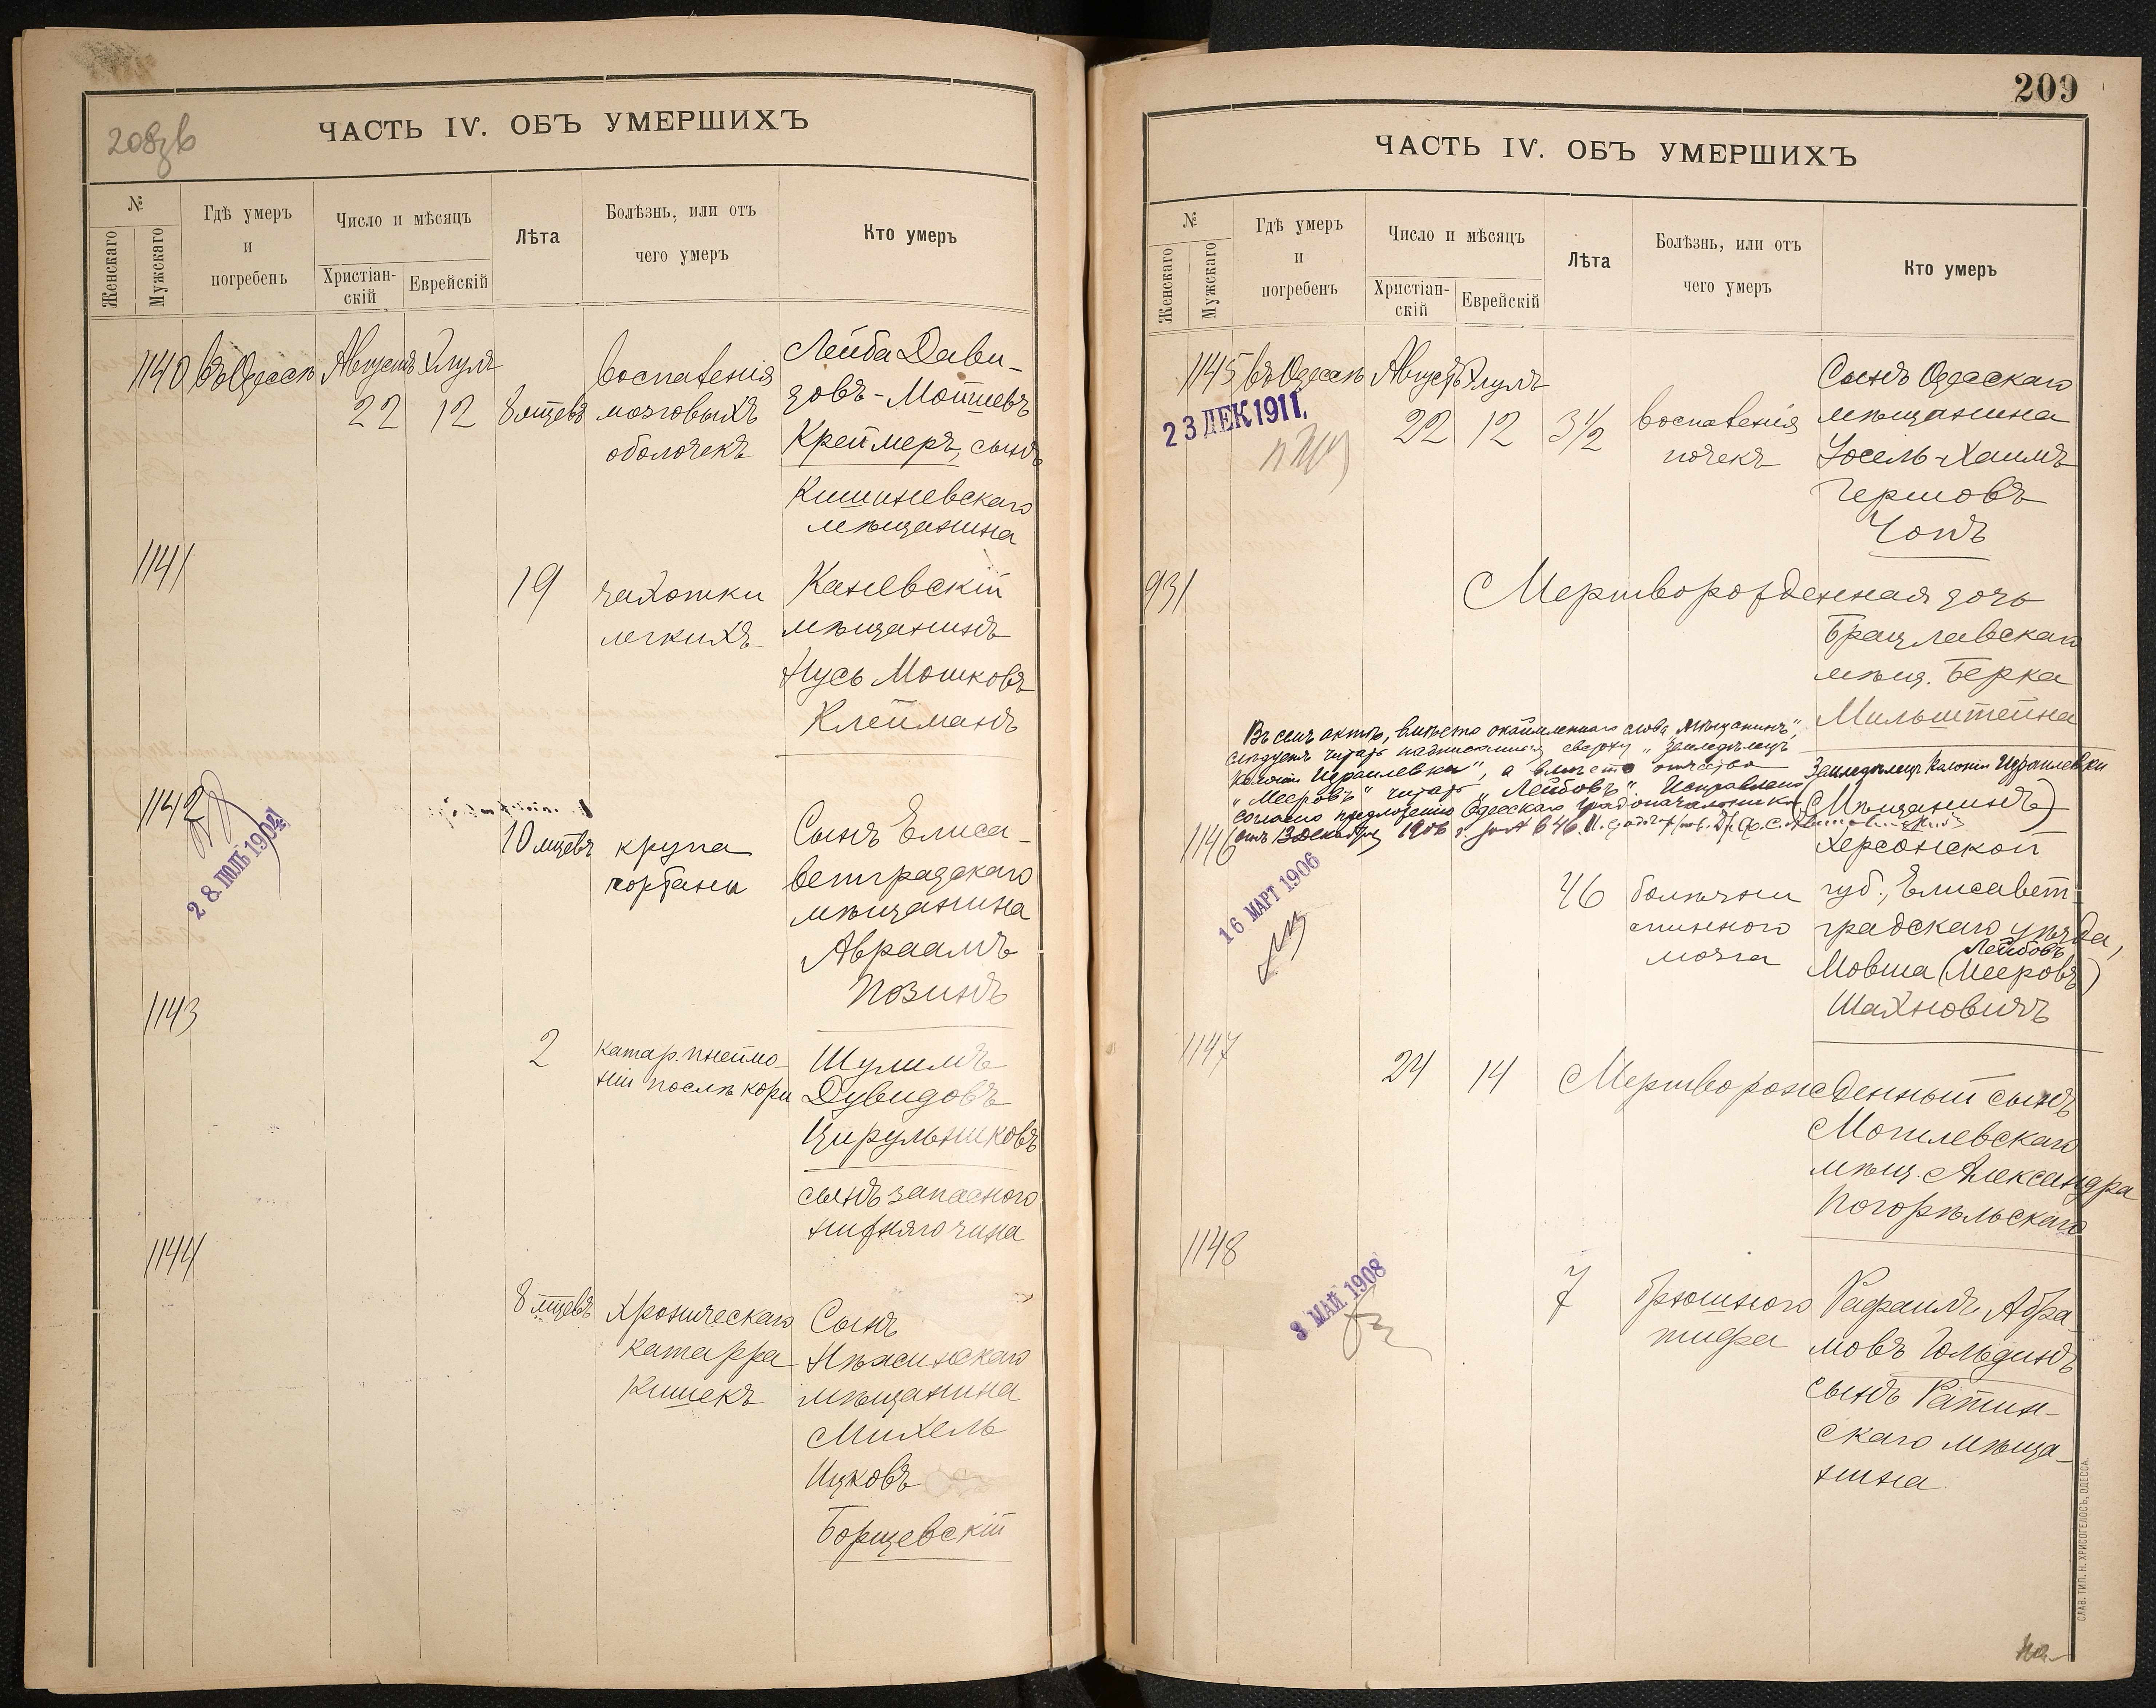 208зв
ЧАСТЬ IV. ОБЪ УМЕРШИХЪ
№
Женскаго
Мужскаго
Гдѣ умеръ
и
погребенъ
Число и мѣсяцъ
Христіан-
скій
Еврейскій
Лѣта
Болѣзнь, или отъ
чего умеръ
Кто умеръ
1140 Въ Одессѣ Августъ Элулъ
22 12 8 мцевъ
воспаленія
мозговыхъ
оболочекъ
Лейба Дави-
довъ-Мотиевъ
Креймеръ, сынъ
Кишиневскаго
мѣщанина
1141
19
чахотки
легкихъ
Каневскій
мѣщанинъ
Нусь Мошковъ
Клейманъ
1142
28 ІЮЛЬ 1904
10 мцевъ
крупа
гортани
Сынъ Елиса-
ветградскаго
мѣщанина
Авраамъ
Позинъ
1143
2
катар. пнеймо-
ніи послѣ кори
Шулимъ
Дувидовъ
Цирульниковъ
сынъ запасного
нижняго чина
1144
8 мцевъ
Хроническаго
катарра
кишекъ
Сынъ
Нѣжинскаго
мѣщанина
Михель
Ицковъ
Борщевскій
209
ЧАСТЬ IV. ОБЪ УМЕРШИХЪ
№
Женскаго
Мужскаго
Гдѣ умеръ
и
погребенъ
Число и мѣсяцъ
Христіан-
скій
Еврейскій
Лѣта
Болѣзнь, или отъ
чего умеръ
Кто умеръ
1145 Въ Одессѣ Августъ Элулъ
23 ДЕК 1911.
22 12 3½
воспаленія
почекъ
Сынъ Одесскаго
мѣщанина
Іосель-Хаимъ
Гершовъ
Чопъ
931
Мертворожденная дочь
Брацлавскаго
мѣщ. Берка
Мильштейна
Въ семъ актѣ, вмѣсто окаймленнаго слова „Мѣщанинъ“,
слѣдуетъ читать надписанныя сверху „Земледѣлецъ
Колоніи Израилевки“, а вмѣсто отчества
„Мееровъ“ читать „Лейбовъ“. Исправлено
согласно предложенію Одесскаго Градоначальника
отъ 13 декабря 1906 г. за № 646.
1146
16 МАРТ 1906
46
болѣзни
спинного
мозга
Земледѣлецъ Колоніи Израилевки
(Мѣщанинъ)
Херсонской
губ., Елисавет-
градскаго уѣзда,
Лейбовъ
Мовша (Мееровъ)
Шахновичъ
1147
24 14 Мертворожденный сынъ
Могилевскаго
мѣщ. Александра
Погорѣльскаго
1148
8 МАЙ 1908
7
брюшного
тифа
Рафаилъ Абра-
мовъ Гольдинъ
сынъ Ратин-
скаго мѣща-
нина.
СЛАВ. ТИП. Н. ХРИСОГЕЛОСЪ, ОДЕССА.